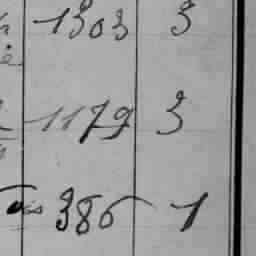 1303 3
1179 3
386 1